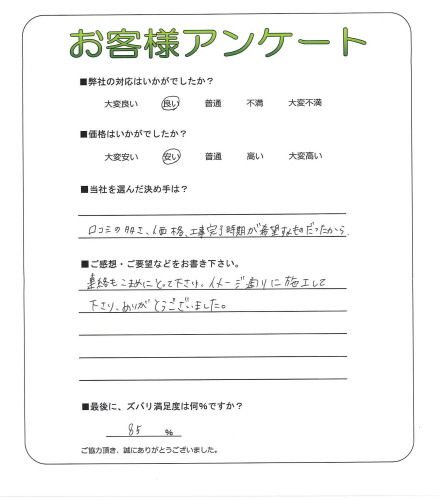 お客様アンケート
■弊社の対応はいかがでしたか?
大変良い 良い 普通 不満 大変不満
■価格はいかがでしたか?
大変安い 安い 普通 高い 大変高い
■当社を選んだ決め手は?
口コミの多さ、価格、工事完了時期が希望なものだったから
■ご感想・ご要望などをお書き下さい。
連絡もこまめにとって下さり、イメージ通りに施工して
下さり、ありがとうございました。
■最後に、ズバリ満足度は何%ですか?
85 %
ご協力頂き、誠にありがとうございました。